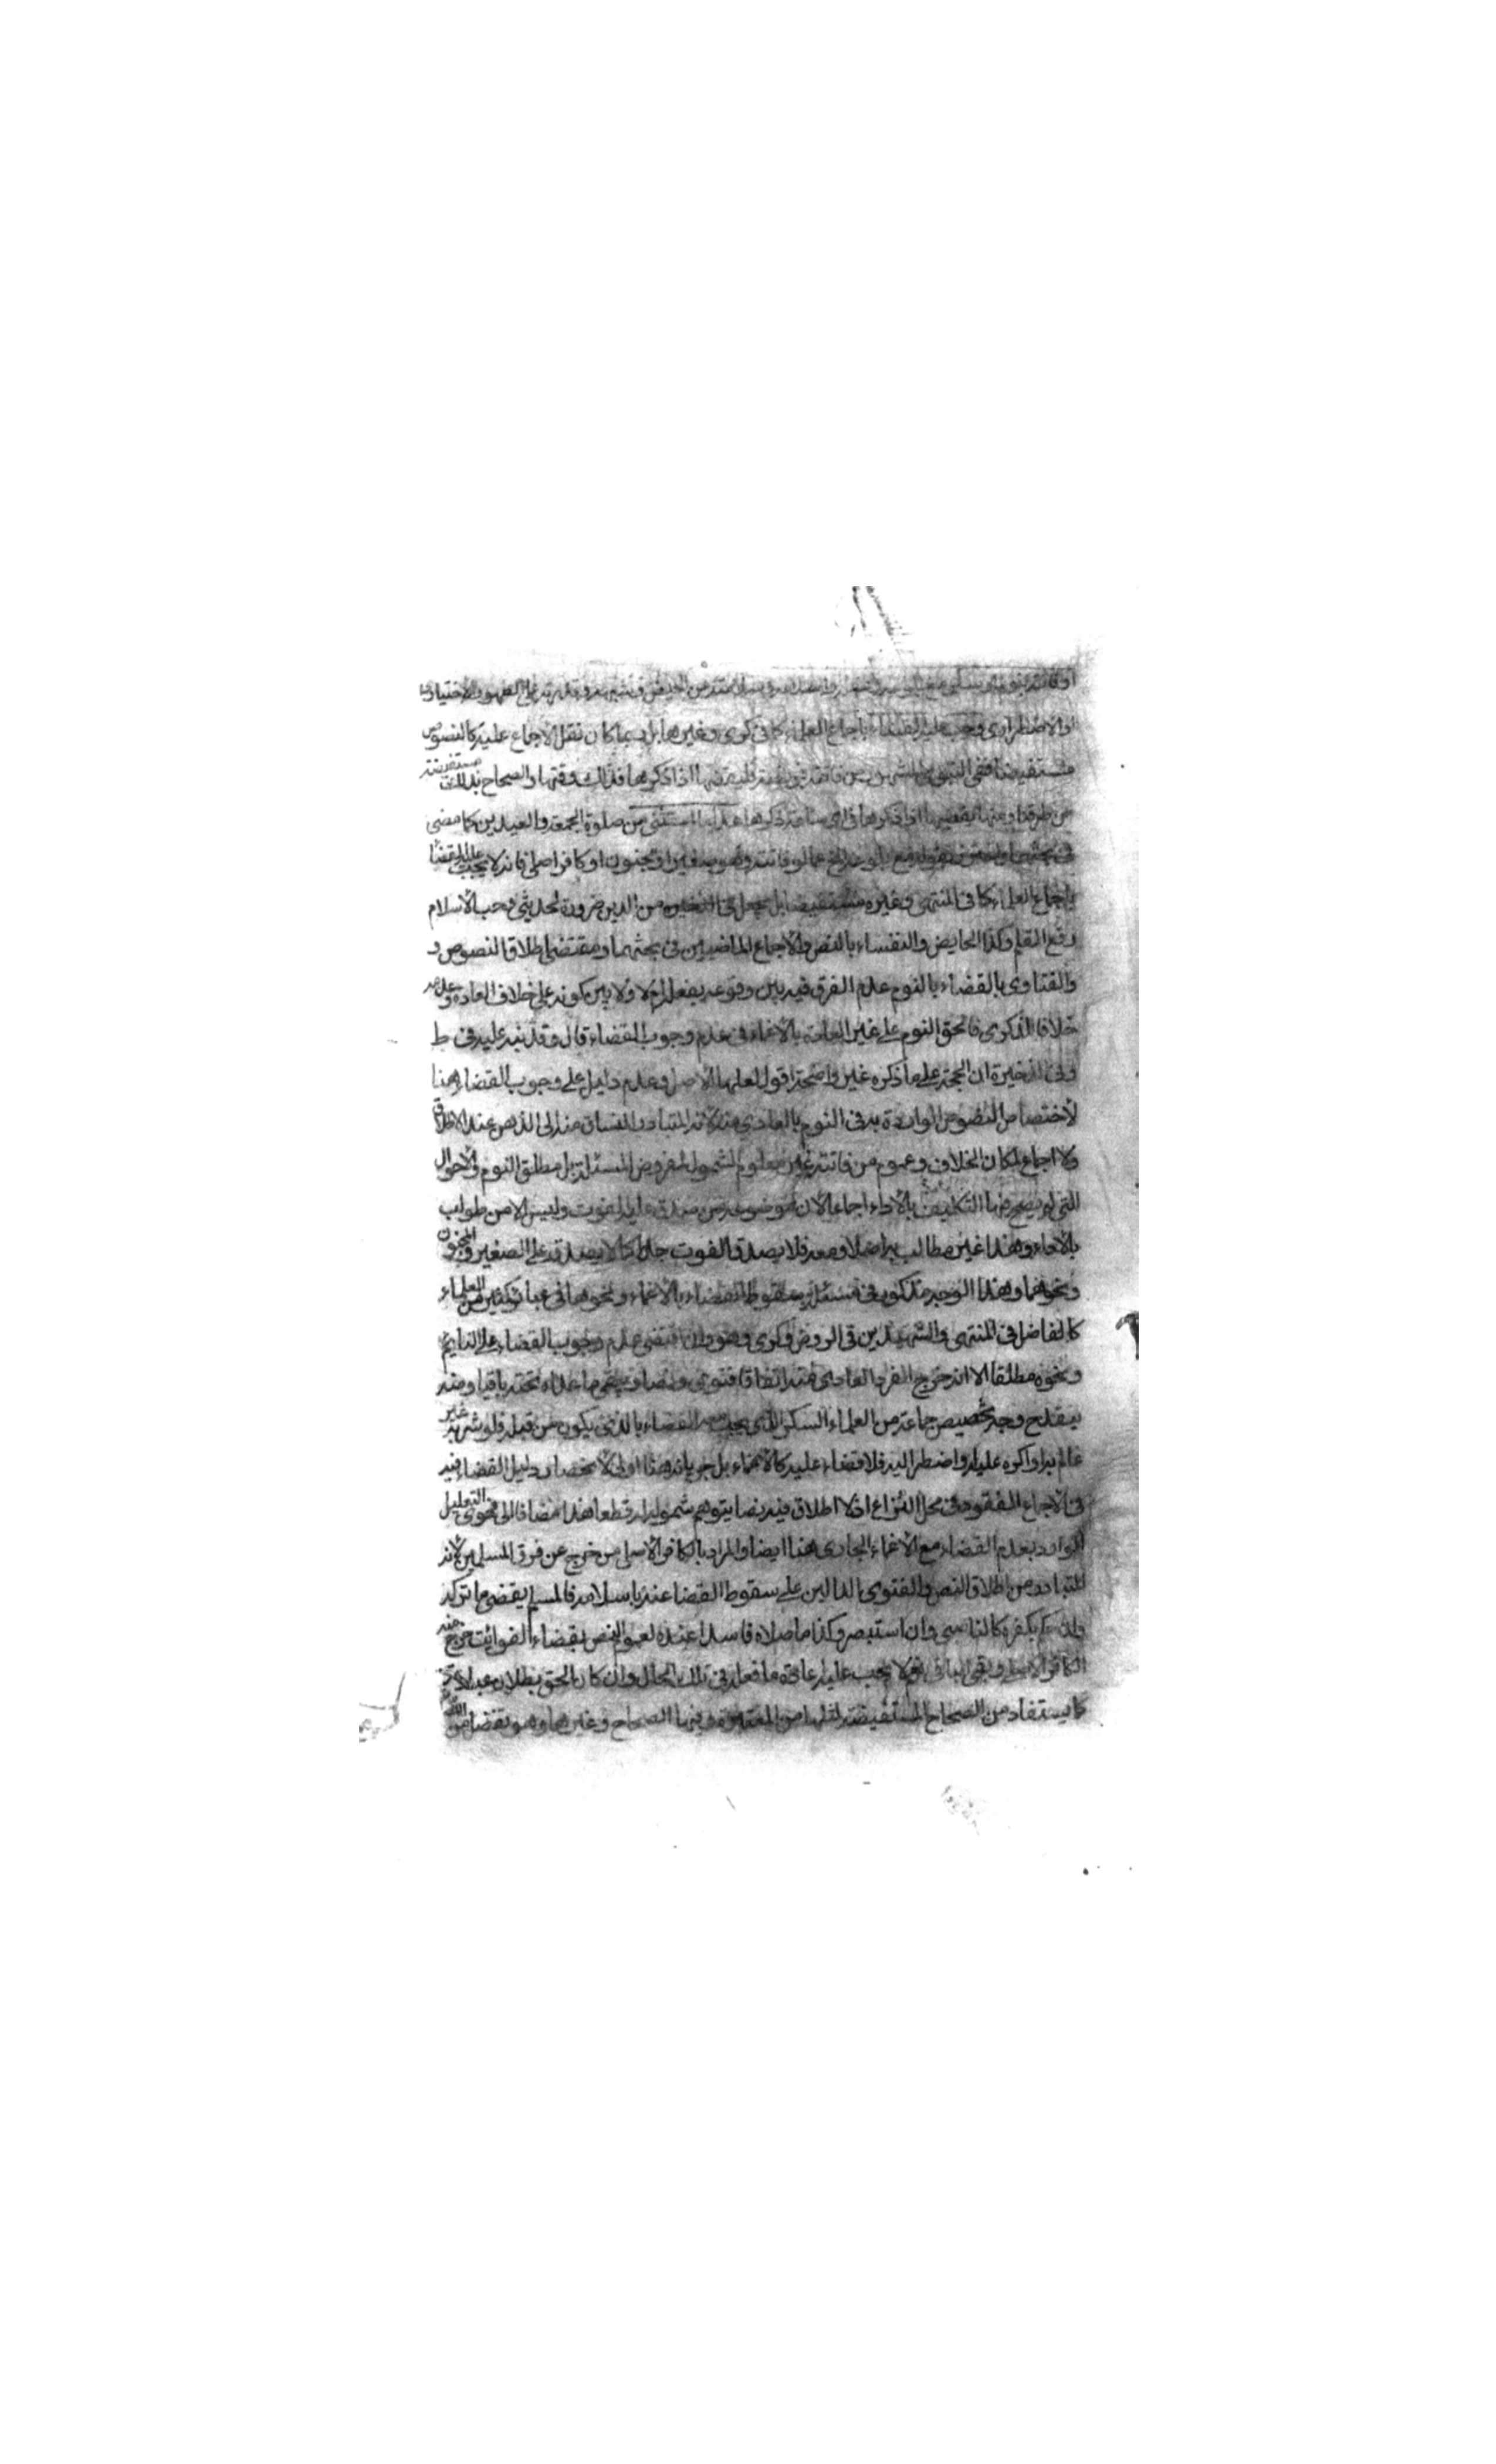 والاضطراري وجب عليه القضاء باجماع العلماء كما في كرى وغيرها بل ربما كان نقل الاجماع عليه كالنصوص
مستفيضا ففي النبوي المشهور من فاتته فريضة فليقضها اذا ذكرها فذلك وقتها والصحاح بذلك مستفيضة
يقضيها اذا ذكرها في اي ساعة ذكرها عدا ما استثنى من صلوة الجمعة والعيدين كما مضى
او مجنون او كافر اصلي فانه لا يجب عليه القضاء
باجماع العلماء كما في المنتهى وغيره مستفيضا بل جعل في الذخيرة من الدين ضرورة لحديثي جب الاسلام
رفع القلم وكذا الحايض والنفساء بالنص والاجماع الماضيين في بحثهما ومقتضى اطلاق النصوص و
والفتاوى بالقضاء بالنوم عدم الفرق فيه بين وقوعه بفعله ام لا ولا بين كونه على خلاف العادة وعدمه
خلافا للذكرى فالحق النوم على غير العادة بالاغماء في عدم وجوب القضاء قال وقد نبه عليه في ط
وفي الذخيرة ان الحجة على ما ذكره غير واضحة اقول لعلها الاصل وعدم دليل على وجوب القضاء هنا
لاختصاص النصوص الواردة به في النوم بالعادي منه لانه المتبادر المنساق منه الى الذهن عند الاطلاق
ولا اجماع لمكان الخلاف وعموم من فاتته غير معلوم الشمول لمفروض المسئلة بل مطلق النوم والاحوال
التي لم يصح فيها التكليف بالاداء اجماعا لان موضوعه من صدق عليه الفوت وليس الا من طولب
بالاداء وهذا غير مطالب به اصلا ومعه فلا يصدق الفوت جدا كما لا يصدق على الصغير والمجنون
ونحوهما وهذا الوجه مذكور في مسئلة سقوط القضاء بالاغماء ونحوها في عبائر كثير من العلماء
كالفاضل في المنتهى والشهيدين في الروض وكرى وهو وان اقتضى عدم وجوب القضاء على النايم
ونحوه مطلقا الا انه خرج الفرد العادي منه اتفاقا فتوى ونصا وبقى ما عداه تحته باقيا ومنه
ينقدح وجه تخصيص جماعة من العلماء السكر الذي يجب معه القضاء بالذي يكون من قبله ولو شربه غير
عالم به او اكره عليه او اضطر اليه فلا قضاء عليه كالاغماء بل جريانه هنا اولى لانحصار دليل القضاء فيه
في الاجماع المفقود في محل النزاع اذ لا اطلاق فيه نصا يتوهم شموله له قطعا هذا مضافا الى فحوى التعليل
الوارد بعدم القضاء مع الاغماء الجاري هنا ايضا والمراد بالكافر الاصلي من خرج عن فرق المسلمين لانه
المتبادر من اطلاق النص والفتوى الدالين على سقوط القضا عنه باسلامه فالمسلم يقضي ما تركه
وان حكم بكفره كالناصبي وان استبصر وكذا ما صلاه فاسدا عنده لعموم النص بقضاء الفوائت خرج منه
الكافر الاصلي وبقى الباقي نعم لا يجب عليه اعادة ما فعله في تلك الحال وان كان الحق بطلان عبادته
كما يستفاد من الصحاح المستفيضة وغيرها من المعتبرة